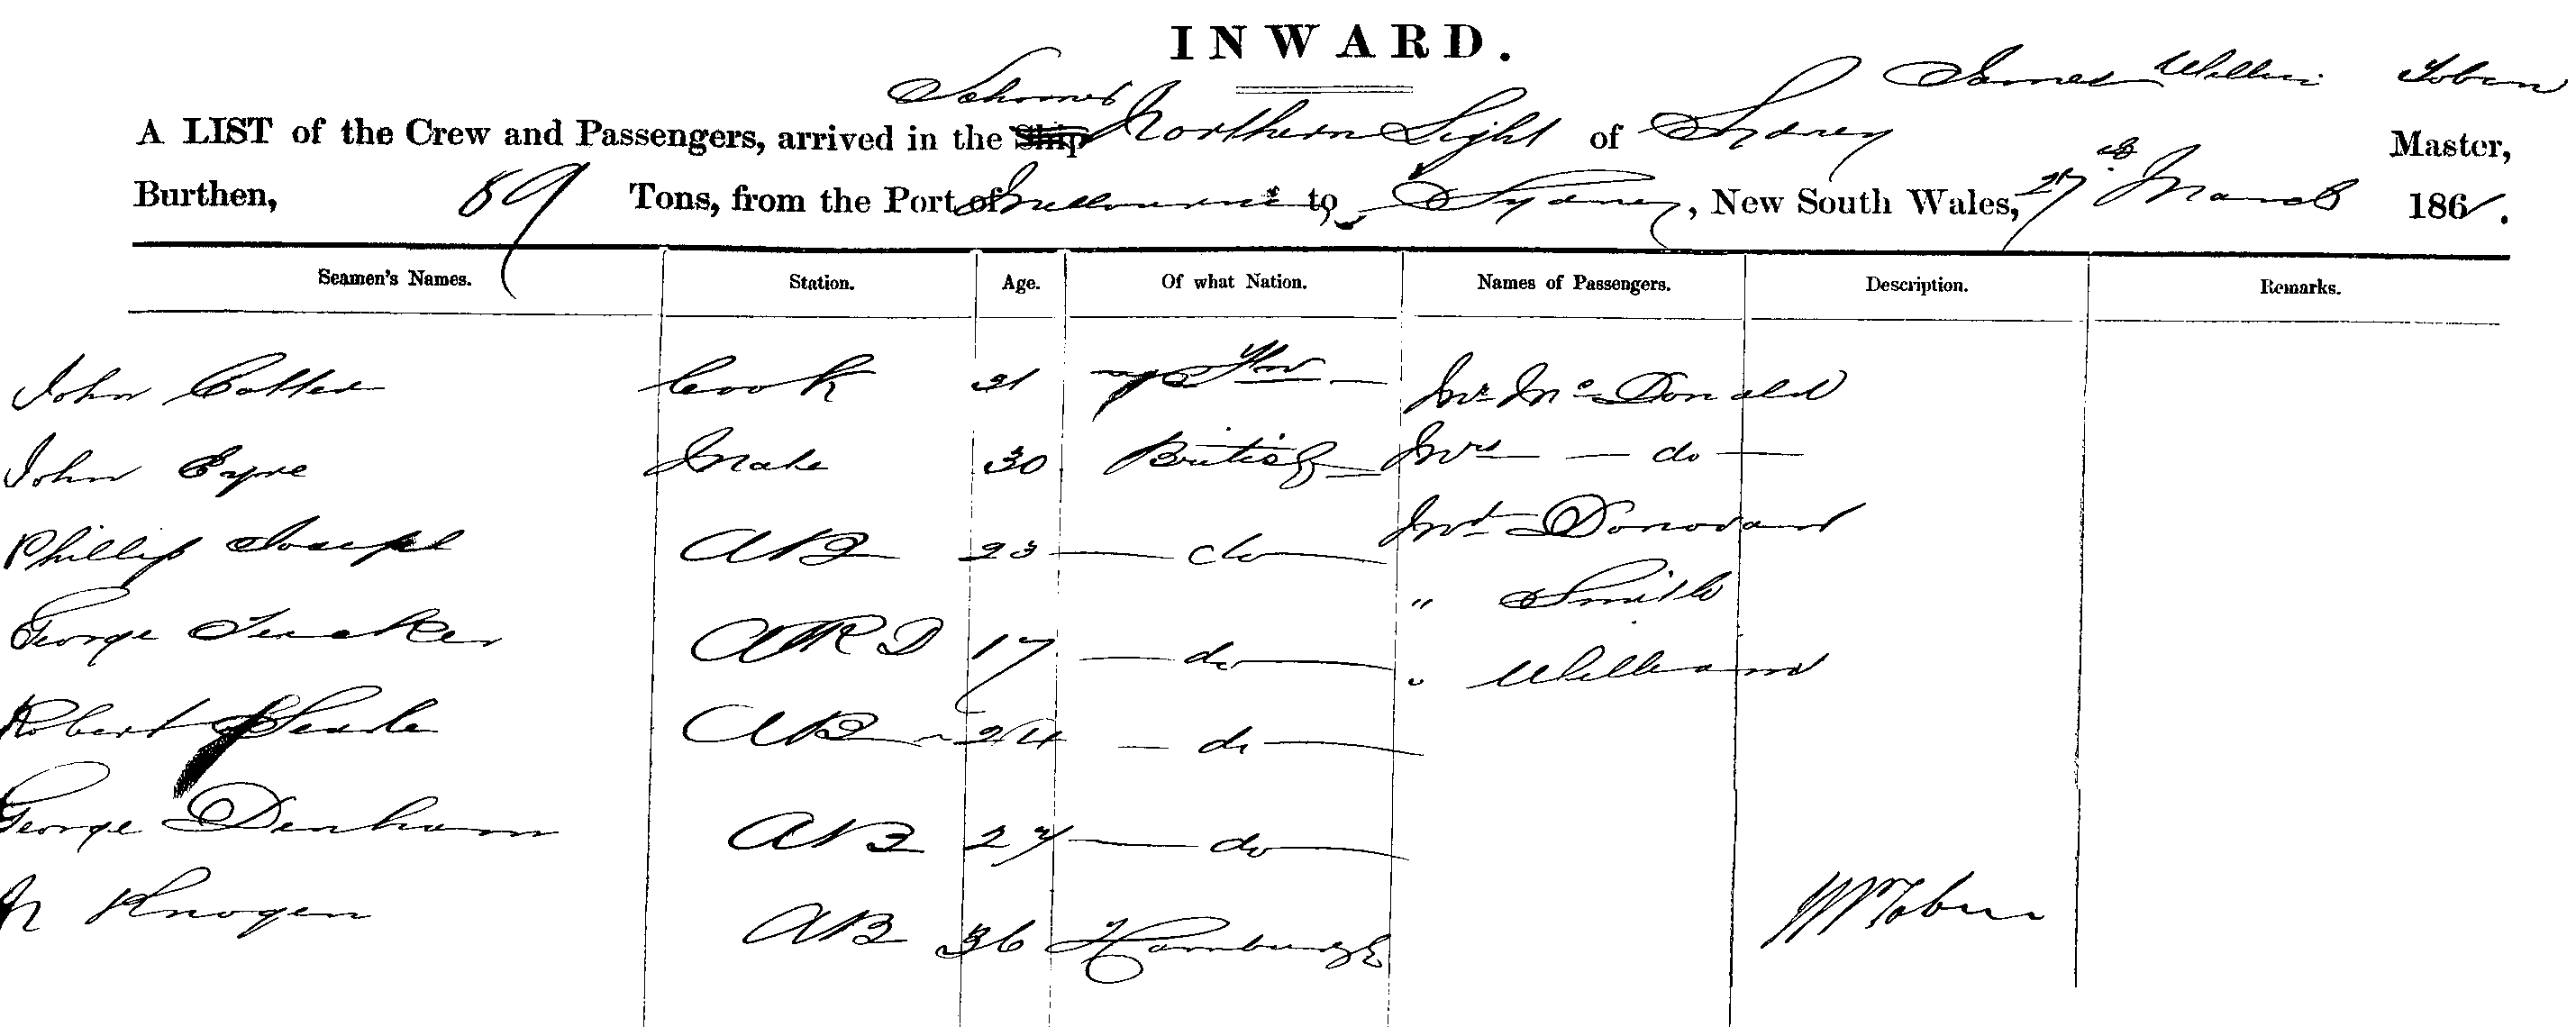 INWARD.
Schooner James William Tobin
A LIST of the Crew and Passengers, arrived in the Ship Northern Light of Sydney Master,
Burthen, 89 Tons, from the Port of Melbourne to Sydney, New South Wales, 27th March 1861.
Seamen's Names. Station. Age. Of what Nation. Names of Passengers. Description. Remarks.
John Cotter Cook 21 Mr McDonald
John Eyre Mate 30 British Mrs — do —
Phillip Joseph AB 23 — do — Mr Donovan
George ORD 17 — do — " Smith
Robert Searle AB 24 — do — " William
George Denham AB 27 — do —
Knogen AB 36 Hamburgh Tobin